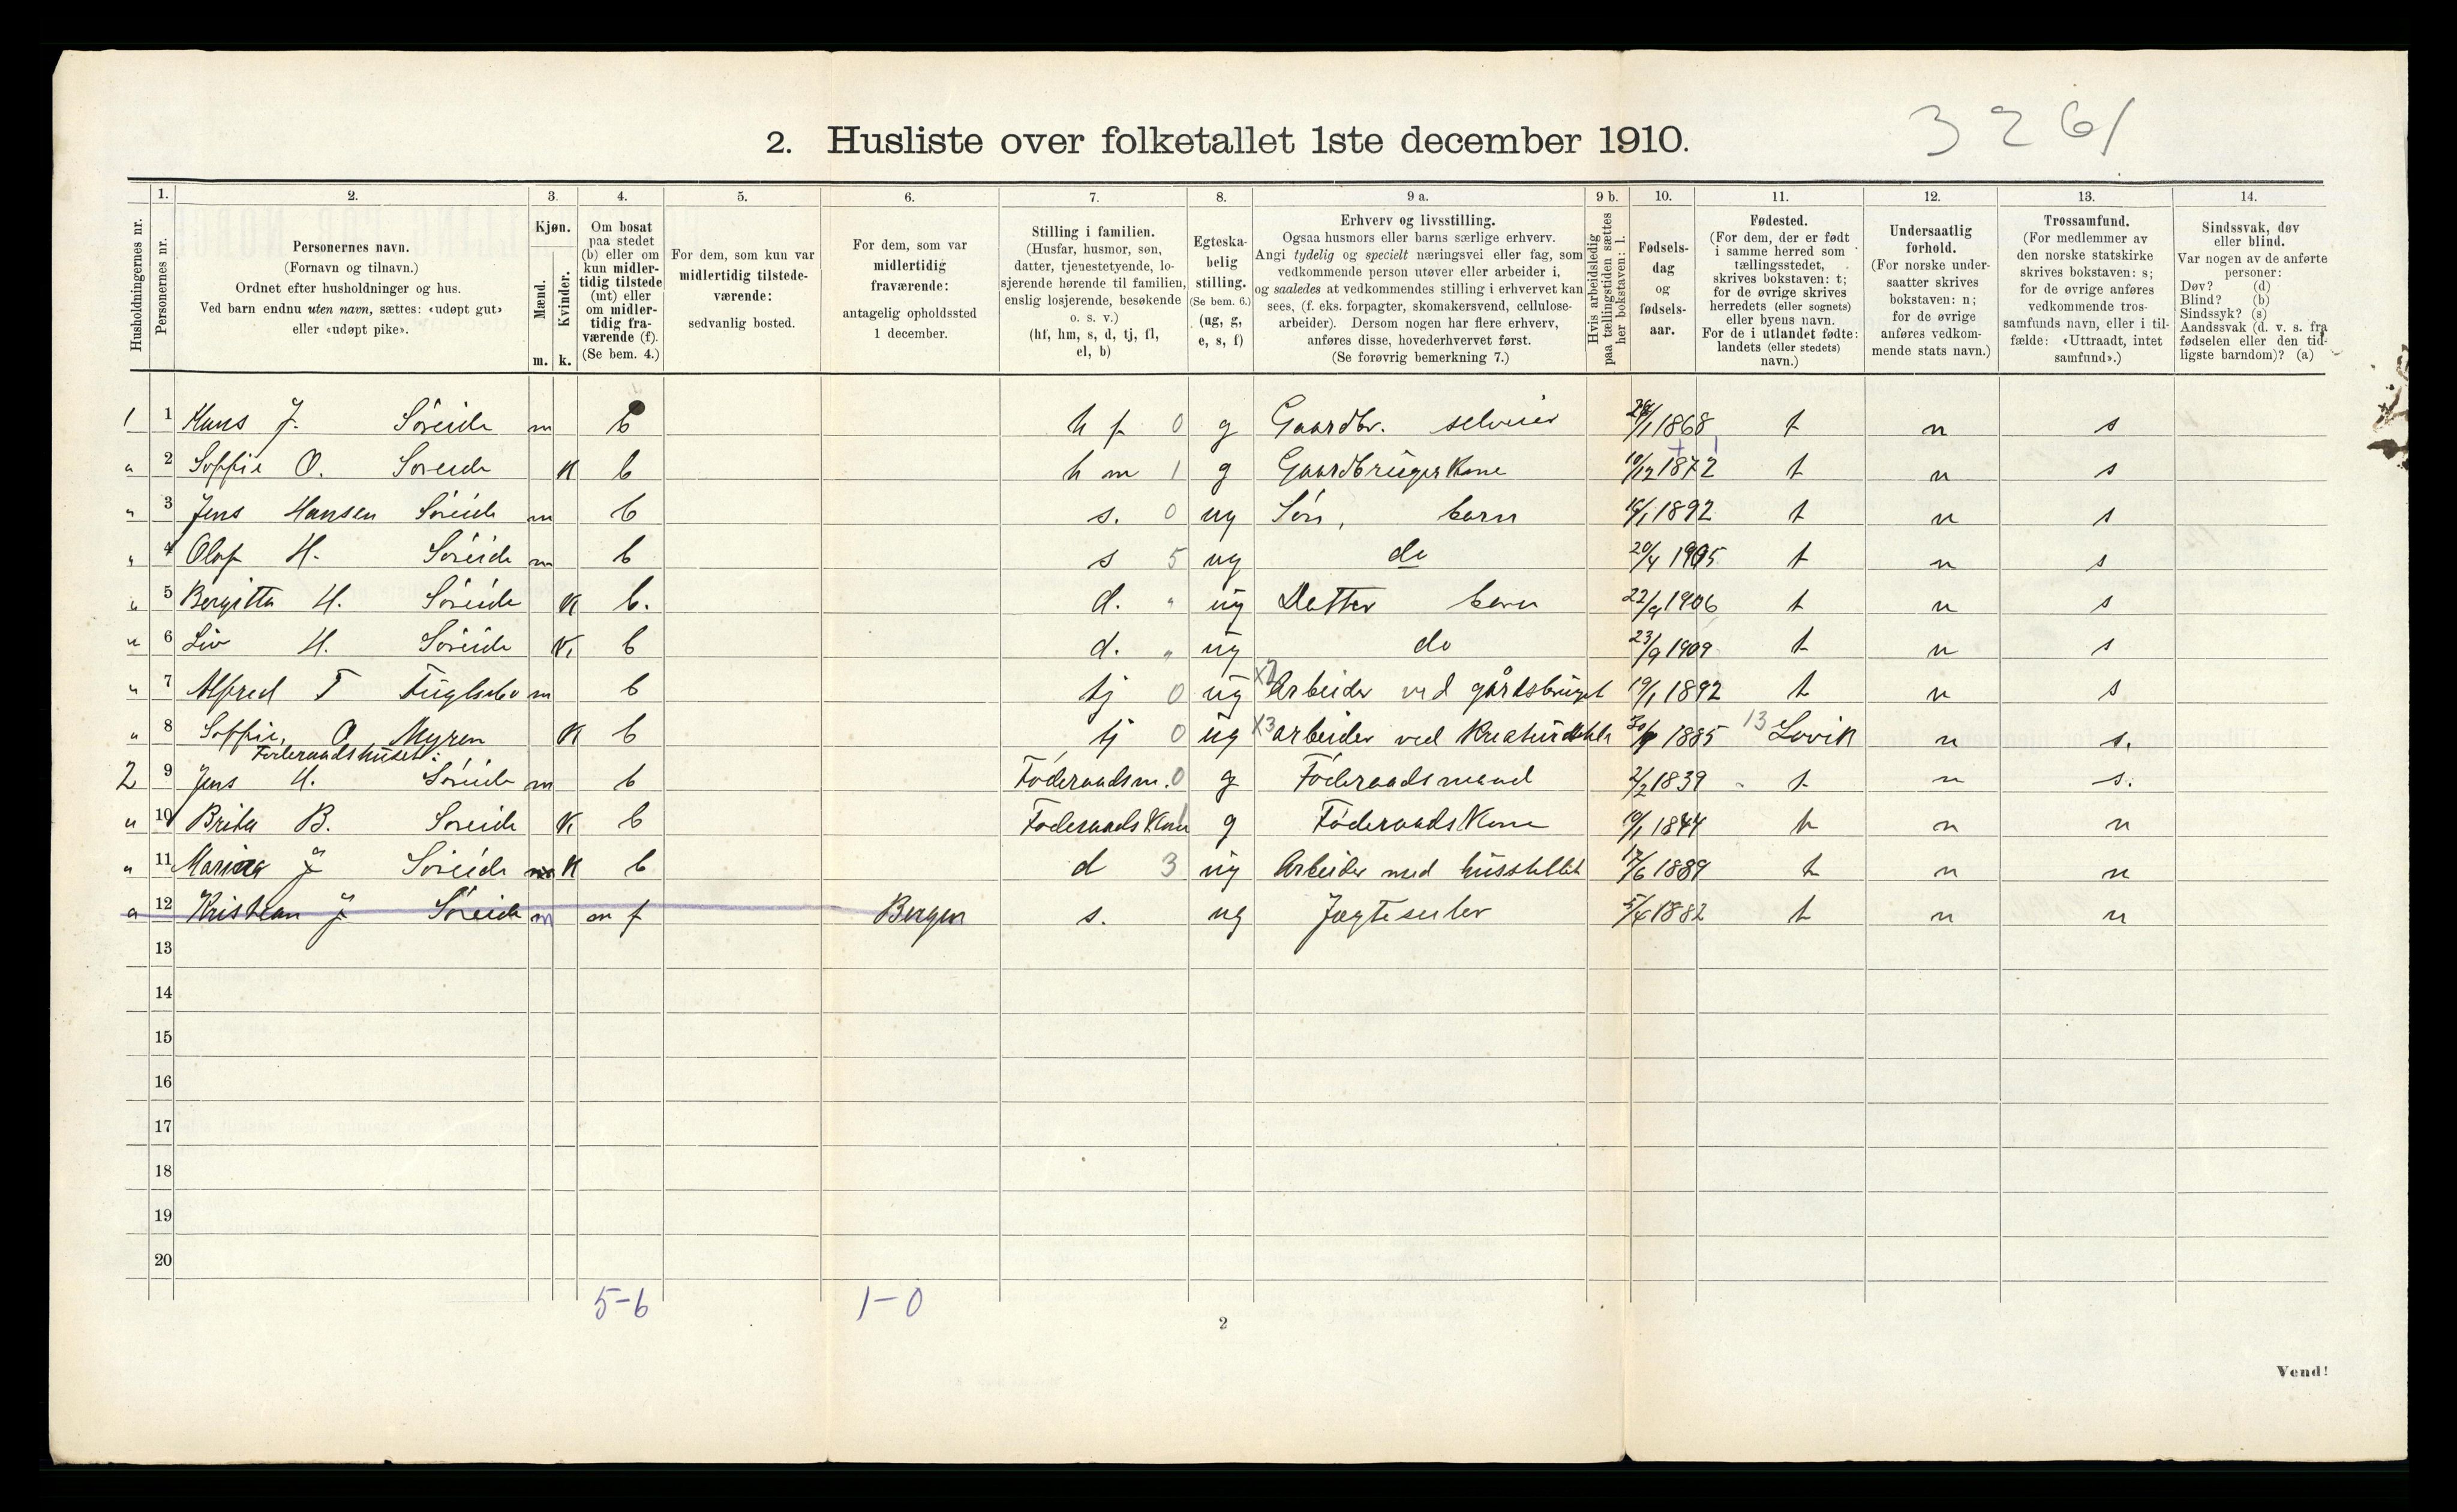 3 2 61
2. Husliste over folketallet 1ste december 1910.
Husholdningernes nr.
1.
Personernes nr.
2.
Personernes navn.
(Fornavn og tilnavn.)
Ordnet efter husholdninger og hus.
Ved barn endnu uten navn, sættes: «udøpt gut»
eller «udøpt pike».
3.
Kjøn.
Mænd.
Kvinder.
m. k.
4.
Om bosat
paa stedet
(b) eller om
kun midler-
tidig tilstede
(mt) eller
om midler-
tidig fra-
værende (f).
(Se bem. 4.)
5.
For dem, som kun var
midlertidig tilstede-
værende:
sedvanlig bosted.
6.
For dem, som var
midlertidig
fraværende:
antagelig opholdssted
1 december.
7.
Stilling i familien.
(Husfar, husmor, søn,
datter, tjenestetyende, lo-
sjerende hørende til familien,
enslig losjerende, besøkende
o. s. v.)
(hf, hm, s, d, tj, fl,
el, b)
8.
Egteska-
belig
stilling.
(Se bem. 6.)
(ug, g,
e, s, f)
9 a.
Erhverv og livsstilling.
Ogsaa husmors eller barns særlige erhverv.
Angi tydelig og specielt næringsvei eller fag, som
vedkommende person utøver eller arbeider i,
og saaledes at vedkommendes stilling i erhvervet kan
sees, (f. eks. forpagter, skomakersvend, cellulose-
arbeider). Dersom nogen har flere erhverv,
anføres disse, hovederhvervet først.
(Se forøvrig bemerkning 7.)
9 b.
Hvis arbeidsledig
paa tællingstiden sættes
her bokstaven: l.
10.
Fødsels-
dag
og
fødsels-
aar.
11.
Fødested.
(For dem, der er født
i samme herred som
tællingsstedet,
skrives bokstaven: t;
for de øvrige skrives
herredets (eller sognets)
eller byens navn.
For de i utlandet fødte:
landets (eller stedets)
navn.)
12.
Undersaatlig
forhold.
(For norske under-
saatter skrives
bokstaven: n;
for de øvrige
anføres vedkom-
mende stats navn.)
13.
Trossamfund.
(For medlemmer av
den norske statskirke
skrives bokstaven: s;
for de øvrige anføres
vedkommende tros-
samfunds navn, eller i til-
fælde: «Uttraadt, intet
samfund».)
14.
Sindssvak, døv
eller blind.
Var nogen av de anførte
personer:
Døv? (d)
Blind? (b)
Sindssyk? (s)
Aandssvak (d. v. s. fra
fødselen eller den tid-
ligste barndom)? (a)
1 1 Hans J. Søreide m b h f 0 g Gaardbr. selveier 1868 t n s
" 2 Soffie O. Søreide K b h m 1 g Gaardbrugerkone 10/12 1872 t n s
" 3 Jens Hansen Søreide m b s. 0 ug Søn, barn 1892 t n s
" 4 Olaf H. Søreide m b s 5 ug do 20/4 1905 t n s
" 5 Bergitta H. Søreide K b. d. " ug Datter barn 22/9 1906 t n s
" 6 Liv H. Søreide K. b d. " ug do 23/9 1909 t n s
" 7 Alfred T Fuglsbø m b tj 0 ug Arbeider ved gårdsbruget 19/1 1892 t n s
" 8 Soffie, O Myren K b tj 0 ug X3 arbeider ved 1885 13 Lavik n s.
Føderaadshuset:
2 9 Jens H. Søreide m b Føderaadsm. 0 g Føderaadsmand 2/2 1839 t n s.
" 10 Brita B. Søreide K. b FøderaadsKone g FøderaadsKone 10/1 1844 t n n
" 11 J Søreide K b d 3 ug Arbeider med husstellet 17/6 1889 t n n
" 12 Kristian J Søreide m m f Bergen s. ug 5/4 1882 t n n
13
14
15
16
17
18
19
20
5-6 1-0
2
Vend!